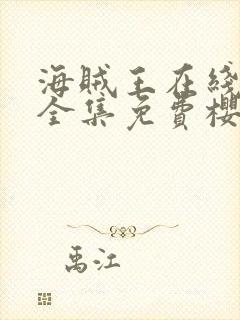 海贼王在线
全集免費櫻
禹江